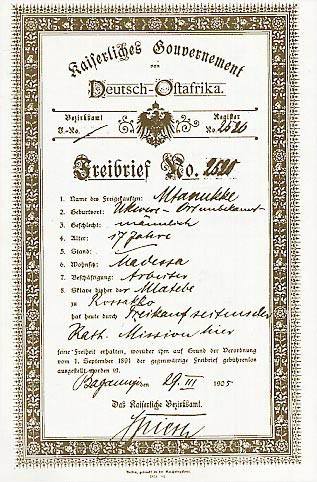 Kaiserliches Gouvernement
von
Deutsch-Ostafrika.
Bezirksamt
T.-No. /
Register
No. 2520
Freibrief No. 2520
1. Name des Freigekauften: Mtanukke
2. Geburtsort: Ukwere - Ort unbekannt
3. Geschlecht: männlich
4. Alter: 17 Jahre
5. Stand:
6. Wohnsitz: Madessa
7. Beschäftigung: Arbeiter
8. Sklave bisher der Matebe
zu Kossakko
hat heute durch Freikauf seitens der
Kath. Mission hier
seine Freiheit erhalten, worüber ihm auf Grund der Verordnung
vom 1. September 1891 der gegenwärtige Freibrief gebührenlos
ausgestellt worden ist.
den 29. III 1905
Das Kaiserliche Bezirksamt.